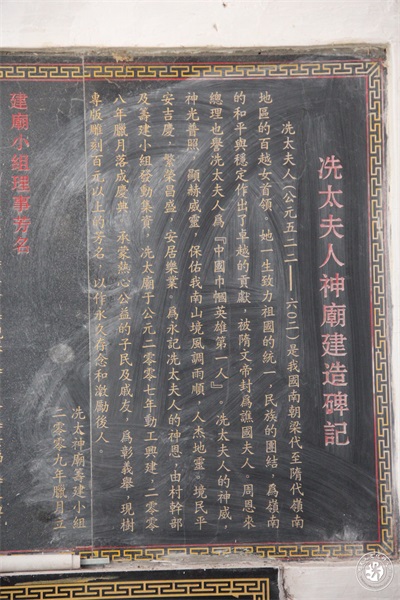 冼太夫人神廟建造碑記
冼太夫人(公元五二二——六〇二)是我國南朝梁代至隋代嶺南
地區的百越女首領，她一生致力祖國的統一，民族的團結，爲嶺南
的和平與穩定作出了卓越的貢獻，被隋文帝封爲譙國夫人。周恩來
總理也譽冼太夫人爲『中國巾幗英雄第一人』 冼太夫人的神威，
神光普照，顯赫威靈，保佑我南山境風調雨順，人杰地靈。境民平
安吉慶，繁榮昌盛，安居樂業。爲永記冼太夫人的神恩，由村幹部
及籌建小組發動集資，冼太廟于公元二零零七年動工興建，二零零
八年臘月落成慶典，承蒙熱心公益的子民及戚友，爲彰義舉，現樹
專版雕刻百元以上的芳名，以作永久存念和激勵後人。
冼太神廟籌建小組
二零零九年臘月立
建廟小組理事芳名